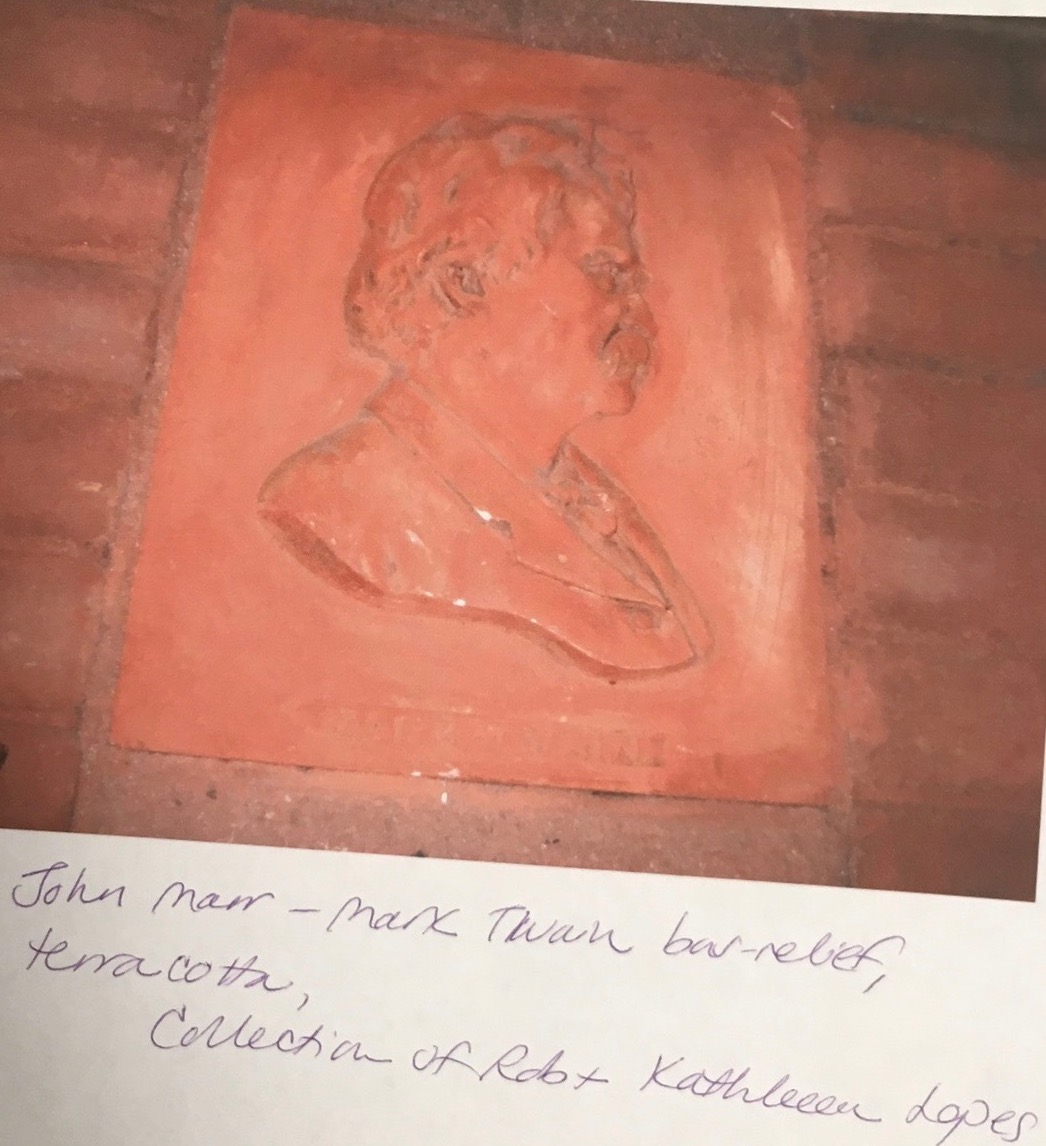 John Marr – Mark Twain bas-relief,
terracotta,
Collection of Rob + Kathleen Lopes